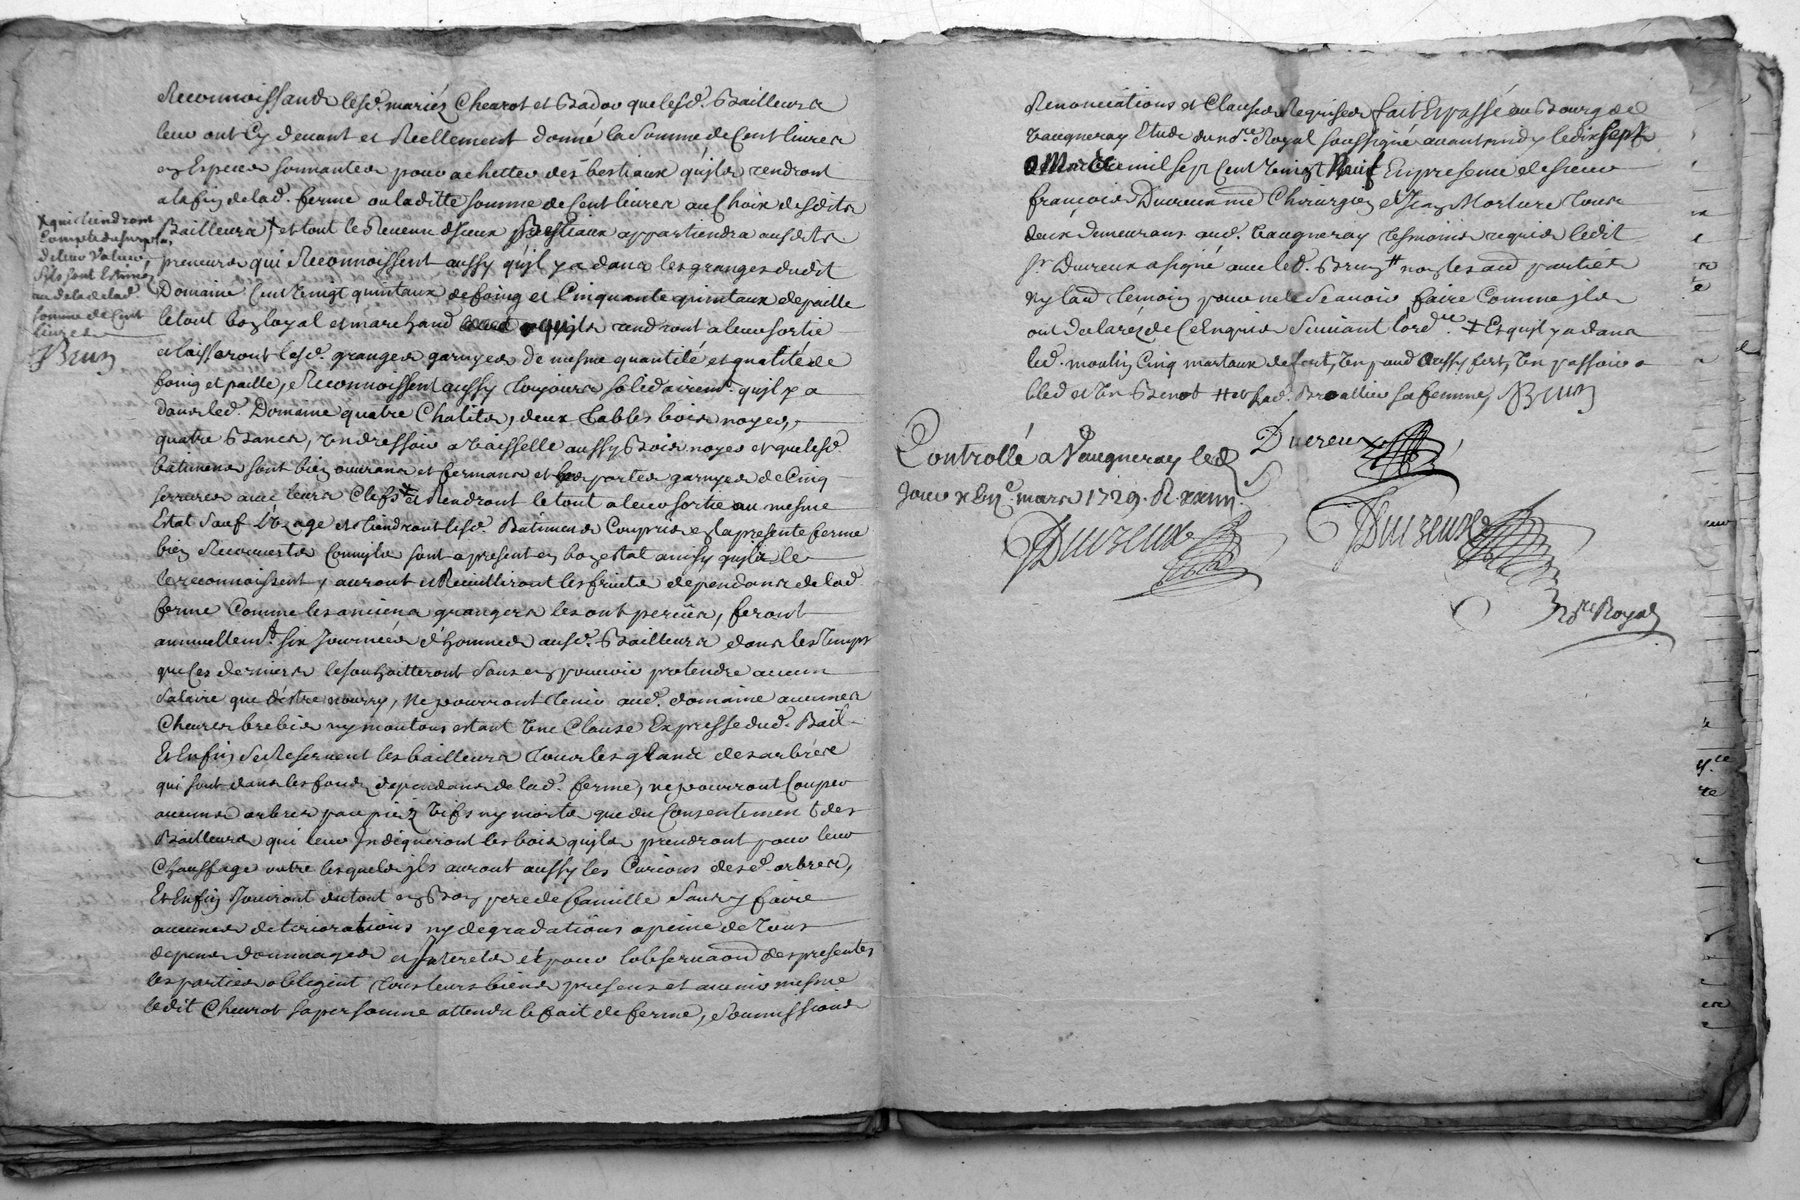 Reconnoissants lesd. mariéz Chearot et Badou que lesd. Bailleurs
leur ont Cy devant et Reellement donné la Somme de Cent livres
en Especes sonnantes pour achetter des bestiaux qu'ils rendront
a la fin de lad. ferme ou laditte somme de Cent livres au Choix desdits
Bailleurs, et tout le Revenu d'iceux Bestiaux appartiendra ausdits
preneurs qui Reconnoissent aussy qu'il y a dans les granges dudit
Domaine Cent Vingt quintaux de foing et Cinquante quintaux de paille
le tout bon loyal et marchand qu'ils rendront a leur sortie
et laisseront lesd. granges garnyes de mesme quantité et qualité de
foing et paille, Reconnoissent aussy toujours solidairemt. qu'il y a
dans led. Domaine quatre Chalits, deux tables bois noyer,
quatre Bancs, Un dressoir a Vaisselle aussy Bois noyer et que lesd.
batimens sont bien ouvrans et fermans et les portes garnyes de Cinq
serrures avec leurs Clefs et Rendront le tout a leur sortie au mesme
Estat Sauf L'uzage et tiendront lesd. Batimens Compris en la presente ferme
bien Recouverts Comm'ils sont a present en bon estat ainsy qu'ils le
le reconnoissent, auront et Recuilliront les fruits dependans de lad.
ferme Comme les anciens grangers les ont percûs, feront
annuellemt. six Journées d'hommes ausd. Bailleurs dans les temps
que Ces derniers le souhaitteront Sans en pouvoir pretendre aucun
Salaire que d'être nourry, Ne pourront tenir aud. domaine aucunes
Chevres brebis ny moutons estant Une Clause Expresse dud. Bail
Et Enfin Se Reservent les bailleurs tous les gland des arbres
qui sont dans les fonds dependans de lad. ferme, ne pourront Couper
aucuns arbres par pied Vifs ny morts que du Consentement des
Bailleurs qui leur Indiqueront les bois qu'ils prendront pour leur
Chauffage outre lesquels ils auront aussy les Curions desd. arbres,
Et Enfin Jouiront du tout en Bon pere de famille Sans y faire
aucunes deteriorations ny degradations a peine de tous
depens dommages et Interets et pour l'observaon des presentes
les parties obligent tous leurs biens presens et avenir mesme
ledit Chearot sa personne attendu le fait de ferme, Soumissions
X qui tiendront
Compte du surplus
de leur Valeur,
S'ils sont Estimés
au dela de lad.
somme de Cent
livres
Brun
Renonciations et Clauses Requises fait Et passé au Bourg de
Vaugneray Etude du nore. Royal soussigné avant midy le dix sept
Mars mil sept Cent Vingt Neuf En presence de sieur
françois Ducreux me Chirurgien et Jean Morture tous
deux demeurans aud. Vaugneray tesmoins requis ledit
Sr Ducreux a signé avec led. Brun non les aud parties
ny laud temoin pour ne le Scavoir faire Comme ils
ont declarez de Ce Enquis Suivant l'orde. + Et qu'il y a dans
led. moulin Cinq martaux de fert, Un aussy fert, Un passoir a
bled et Un Benot Brun
Ducreux
Controllé a Vaugneray led.
Jour mars 1729. R.
Duizeux
Duizeux
Nore Royal